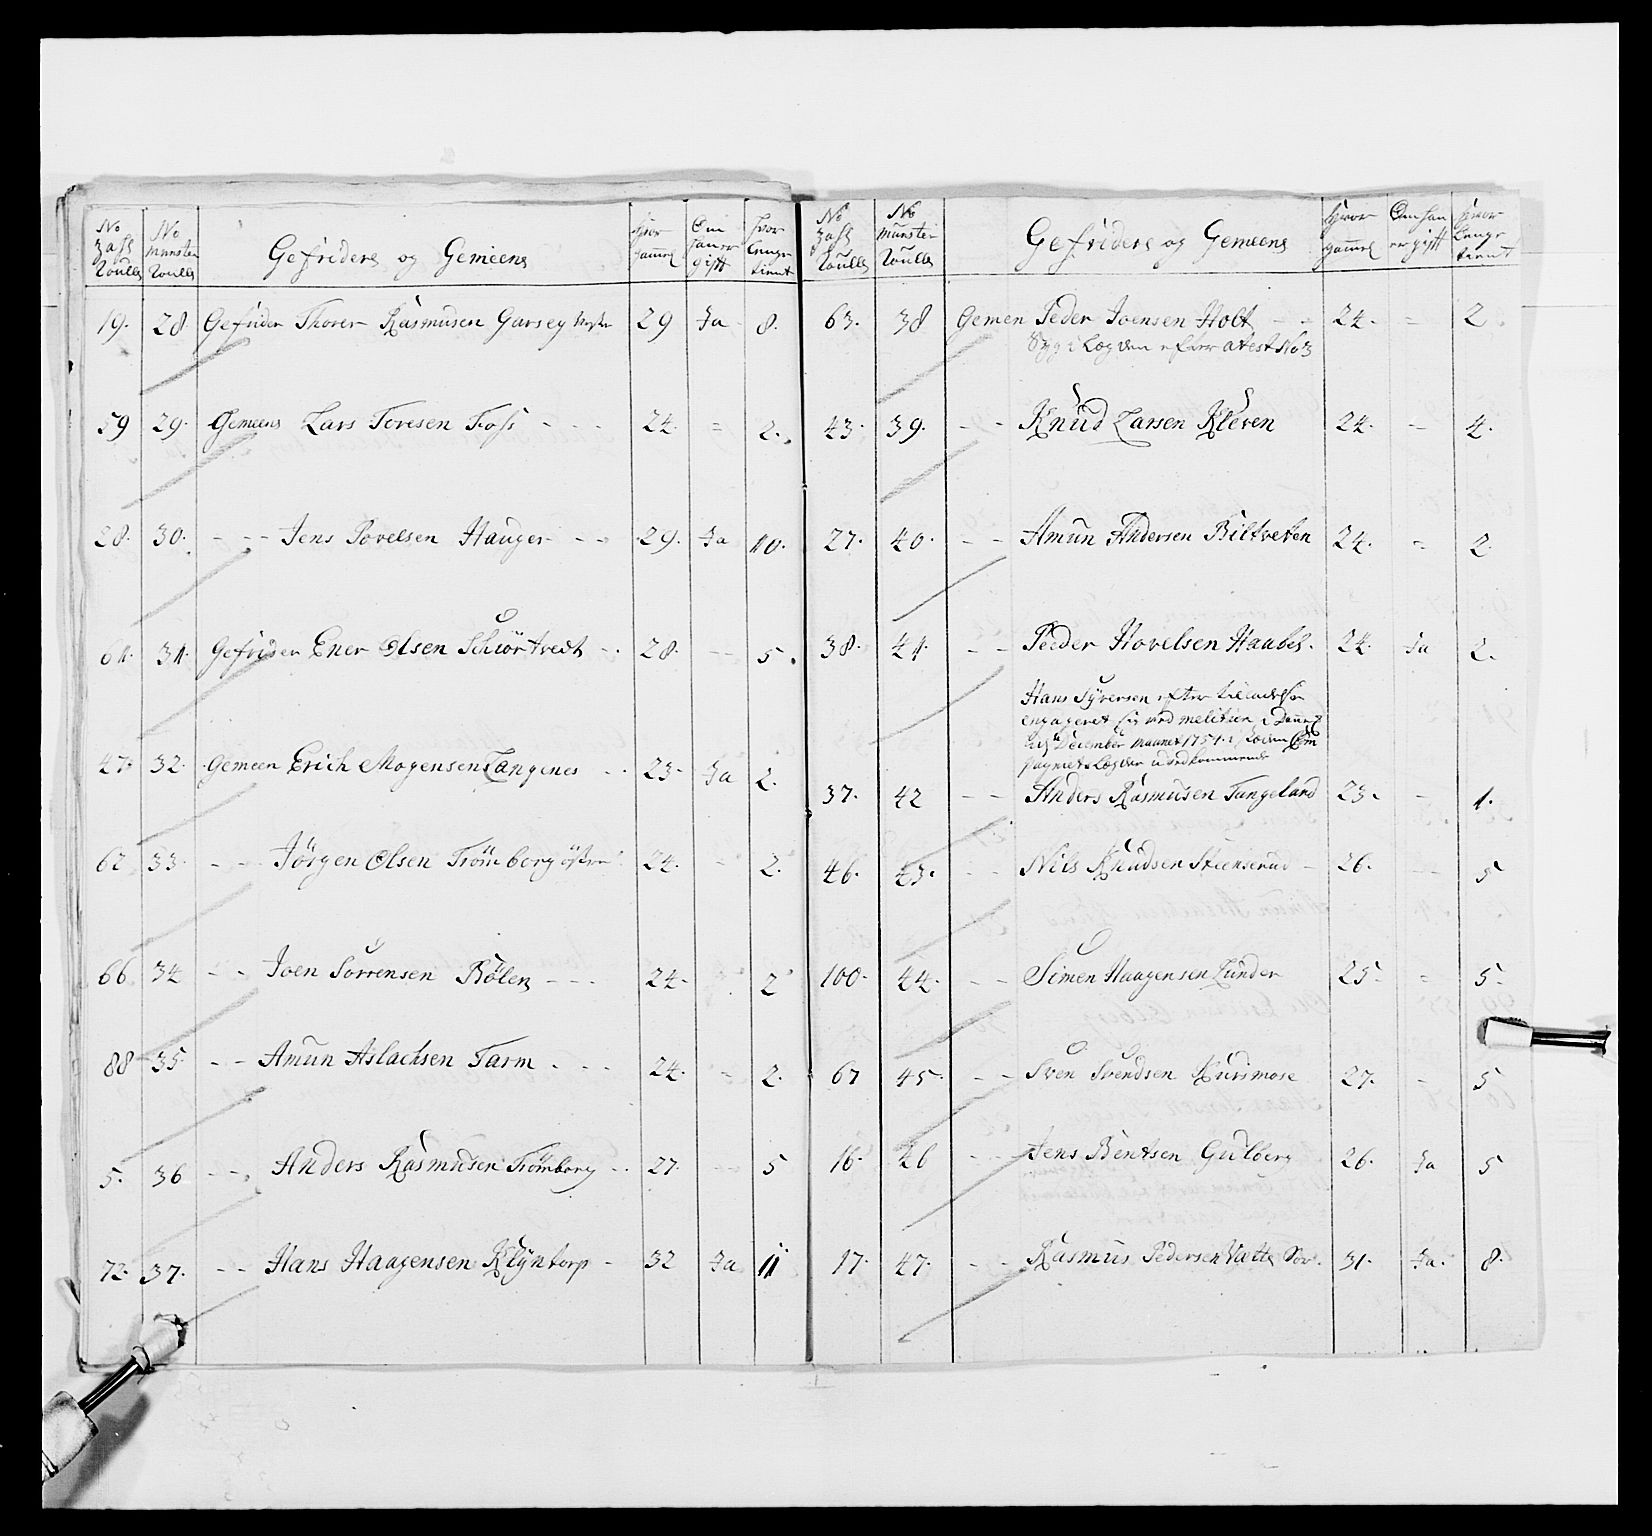 No Zahl Roulle | No Munster Roulle | Gefridere og Gemeene | Hvor gammel | Om han er gift | Hvor lenge tient
19. 28 Gefrider Thorer Rasmusen Garseg 29 Ja 8.
59 29. Gemeene Lars Toresen Foss - - - 24. = 2.
28. 30. - - - Jens Povelsen Hauger - - 29. Ja 10.
61. 31. Gefrider Ener Olsen Schiørtvedt - - 28. - - 5.
47. 32. Gemeen Erich Mogensen Langenes - - 23. Ja 2.
62 33. - - Jörgen Olsen Trömborg östre 24. - 2.
66. 34 - - Joen Sörrensen Bölen - - - 24. 2
88 35. - - Amun Aslachsen Tarm - - - 24. - 2.
5. 36 - - - Anders Rasmusen Trömborg - - 27. - 5
72. 37. - - Hans Haagensen Klÿntorp - 32 Ja 11
No Zahl Roulle | No Munster Roulle | Gefridere og Gemeene | Hvor gammel | Om han er gift | Hvor lenge tient
63. 38 Gemen Peder Joensen Holt - - 24. = 2.
Syg i Legden efter atest No 3
43. 39. - - Knud Larsen Kleven 24. - 4.
27. 40. - - Amun Andersen Biltveten 24. = 2.
38. 41. - - Peder Hovelsen Haabel. 24. Ja 2.
Hans Syversen efter
engageret sig ved melitien i Danm:
December Maanet 1751. i
37. 42 - - Anders Rasmusen Tangeland 23. - 1.
46. 43. - - Nils Knudsen Steenserud - 26. - - 5
100. 44. - - Simen Haagensen Lunder 25. = 5.
67 45. - - Sven Svendsen Kurimose 27. - 5
16. 46 - - Jens Bentsen Gulberg 26. Ja 5
17. 47. - - Rasmus Pedersen Vatte 31. Ja. 8.